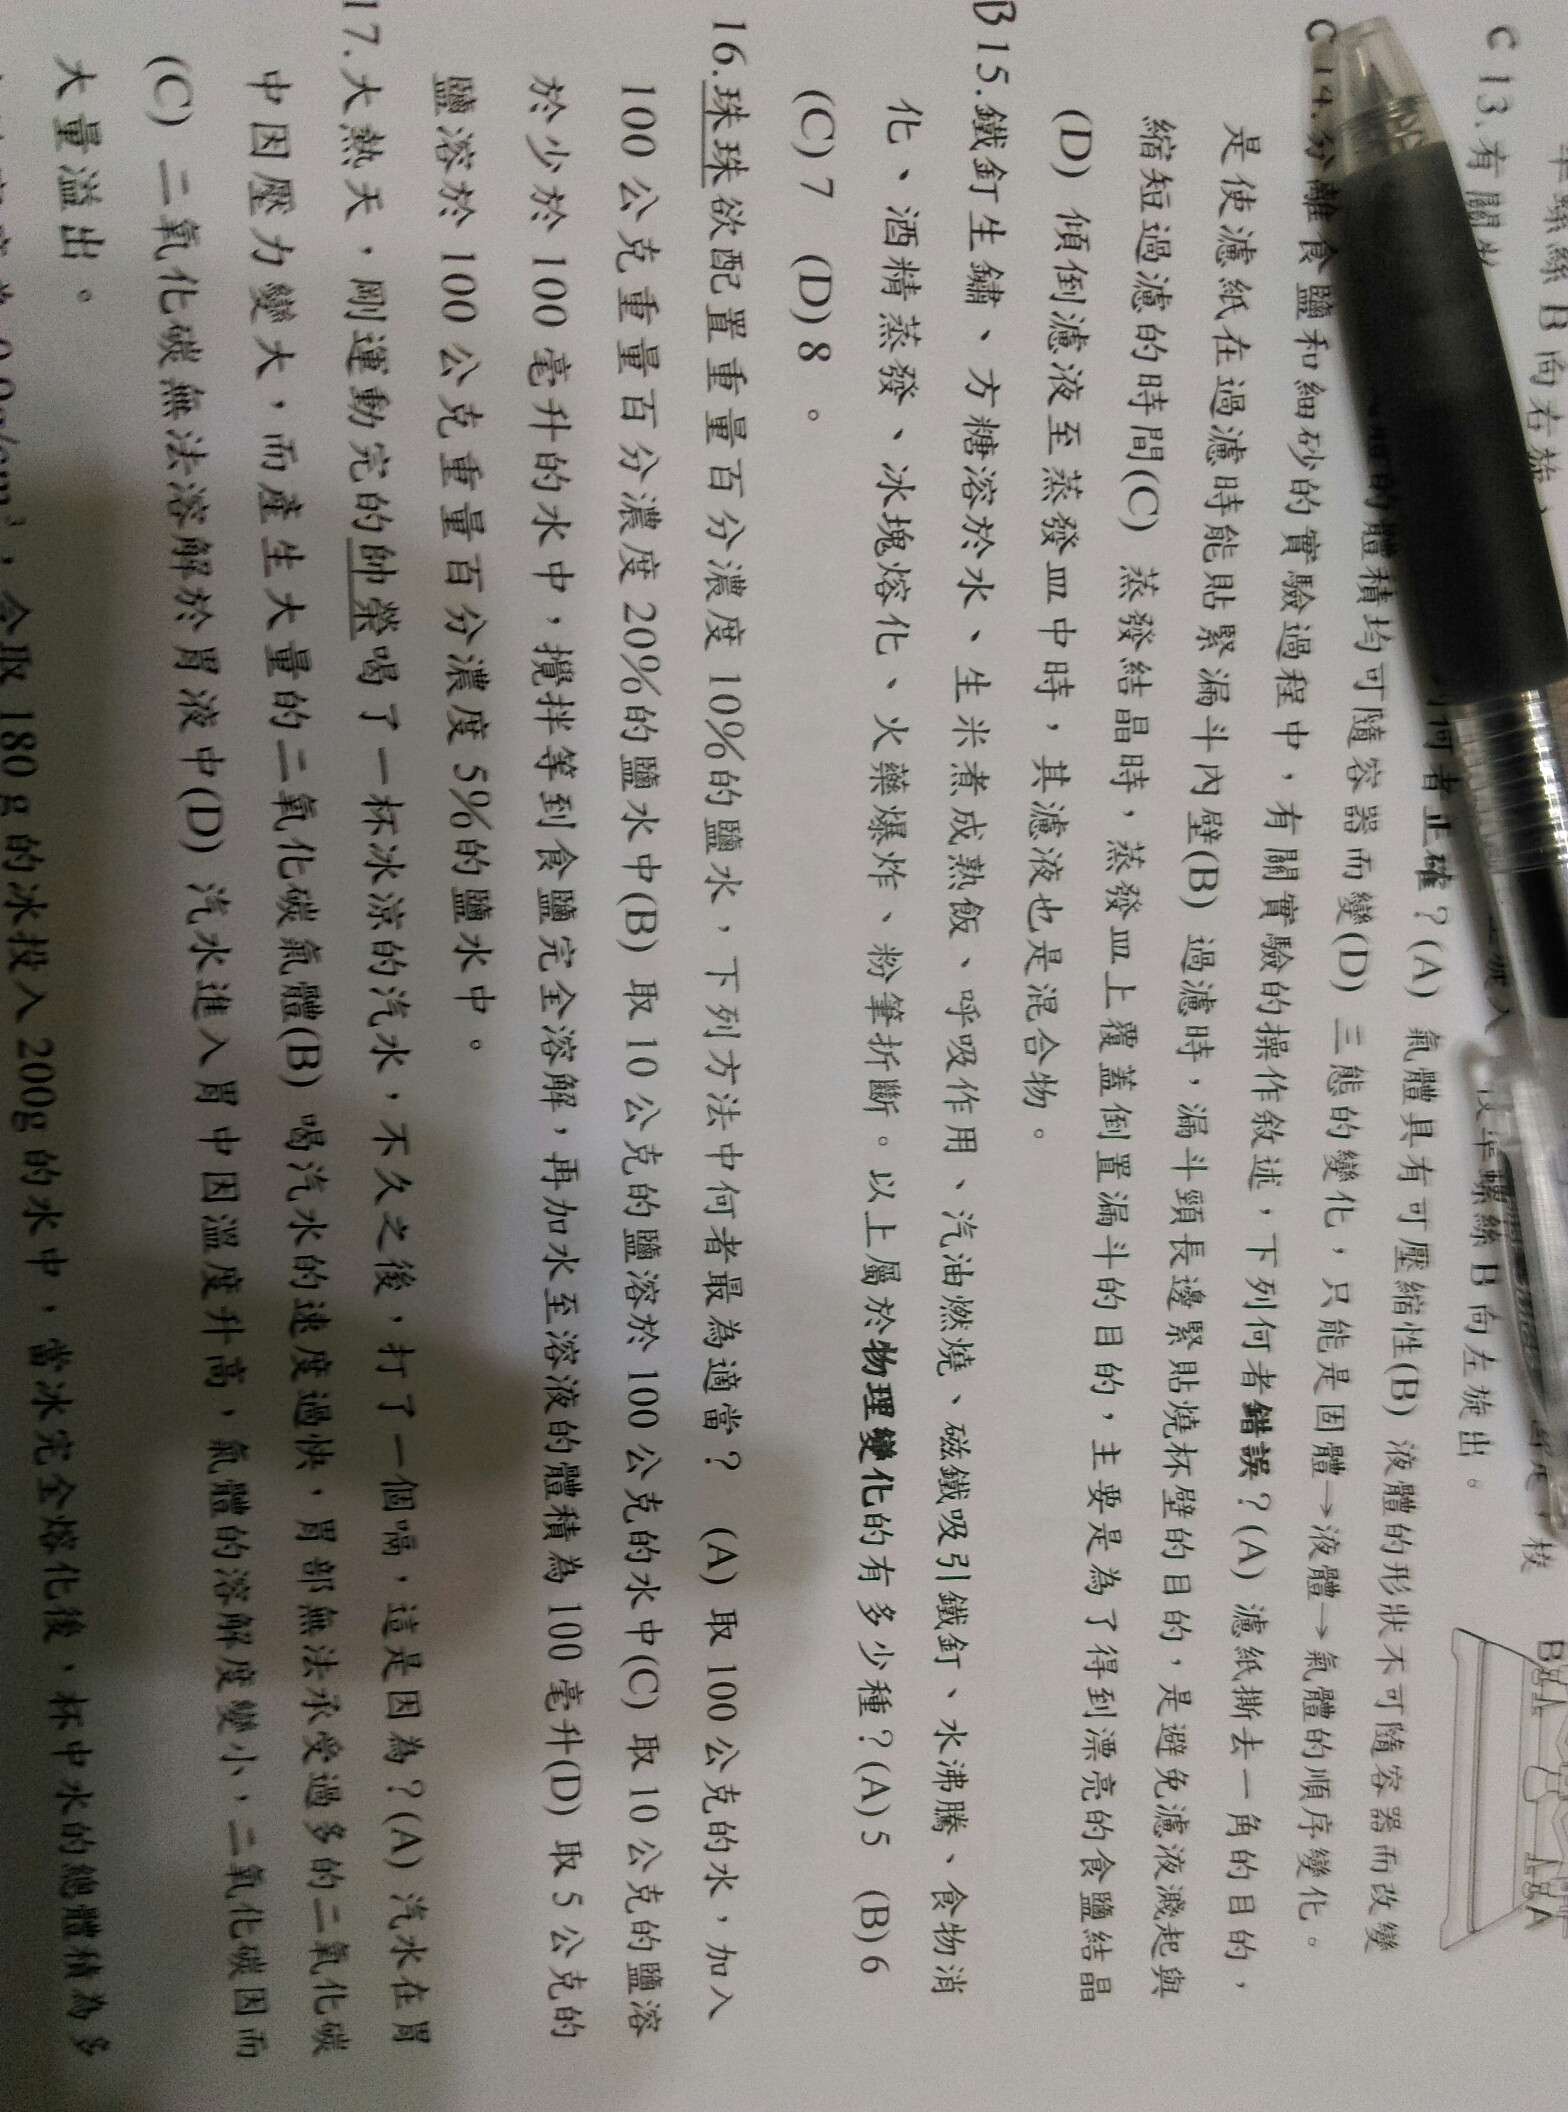 向右旋
向左旋出。
C 13.有關
何者正確？(A) 氣體具有可壓縮性(B) 液體的形狀不可隨容器而改變
的體積均可隨容器而變(D) 三態的變化，只能是固體→液體→氣體的順序變化。
C 14.分離食鹽和細砂的實驗過程中，有關實驗的操作敘述，下列何者錯誤？(A) 濾紙撕去一角的目的，
是使濾紙在過濾時能貼緊漏斗內壁(B) 過濾時，漏斗頸長邊緊貼燒杯壁的目的，是避免濾液濺起與
縮短過濾的時間(C) 蒸發結晶時，蒸發皿上覆蓋倒置漏斗的目的，主要是為了得到漂亮的食鹽結晶
(D) 傾倒濾液至蒸發皿中時，其濾液也是混合物。
B 15.鐵釘生鏽、方糖溶於水、生米煮成熟飯、呼吸作用、汽油燃燒、磁鐵吸引鐵釘、水沸騰、食物消
化、酒精蒸發、冰塊熔化、火藥爆炸、粉筆折斷。以上屬於物理變化的有多少種？(A) 5 (B) 6
(C) 7 (D) 8 。
16.珠珠欲配置重量百分濃度 10%的鹽水，下列方法中何者最為適當？ (A) 取 100 公克的水，加入
100 公克重量百分濃度 20%的鹽水中(B) 取 10 公克的鹽溶於 100 公克的水中(C) 取 10 公克的鹽溶
於少於 100 毫升的水中，攪拌等到食鹽完全溶解，再加水至溶液的體積為 100 毫升(D) 取 5 公克的
鹽溶於 100 公克重量百分濃度 5%的鹽水中。
17.大熱天，剛運動完的帥榮喝了一杯冰涼的汽水，不久之後，打了一個嗝，這是因為？(A) 汽水在胃
中因壓力變大，而產生大量的二氧化碳氣體(B) 喝汽水的速度過快，胃部無法承受過多的二氧化碳
(C) 二氧化碳無法溶解於胃液中(D) 汽水進入胃中因溫度升高，氣體的溶解度變小，二氧化碳因而
大量溢出。
，今取 180 g 的冰投入 200g 的水中，當冰完全熔化後，杯中水的總體積為多